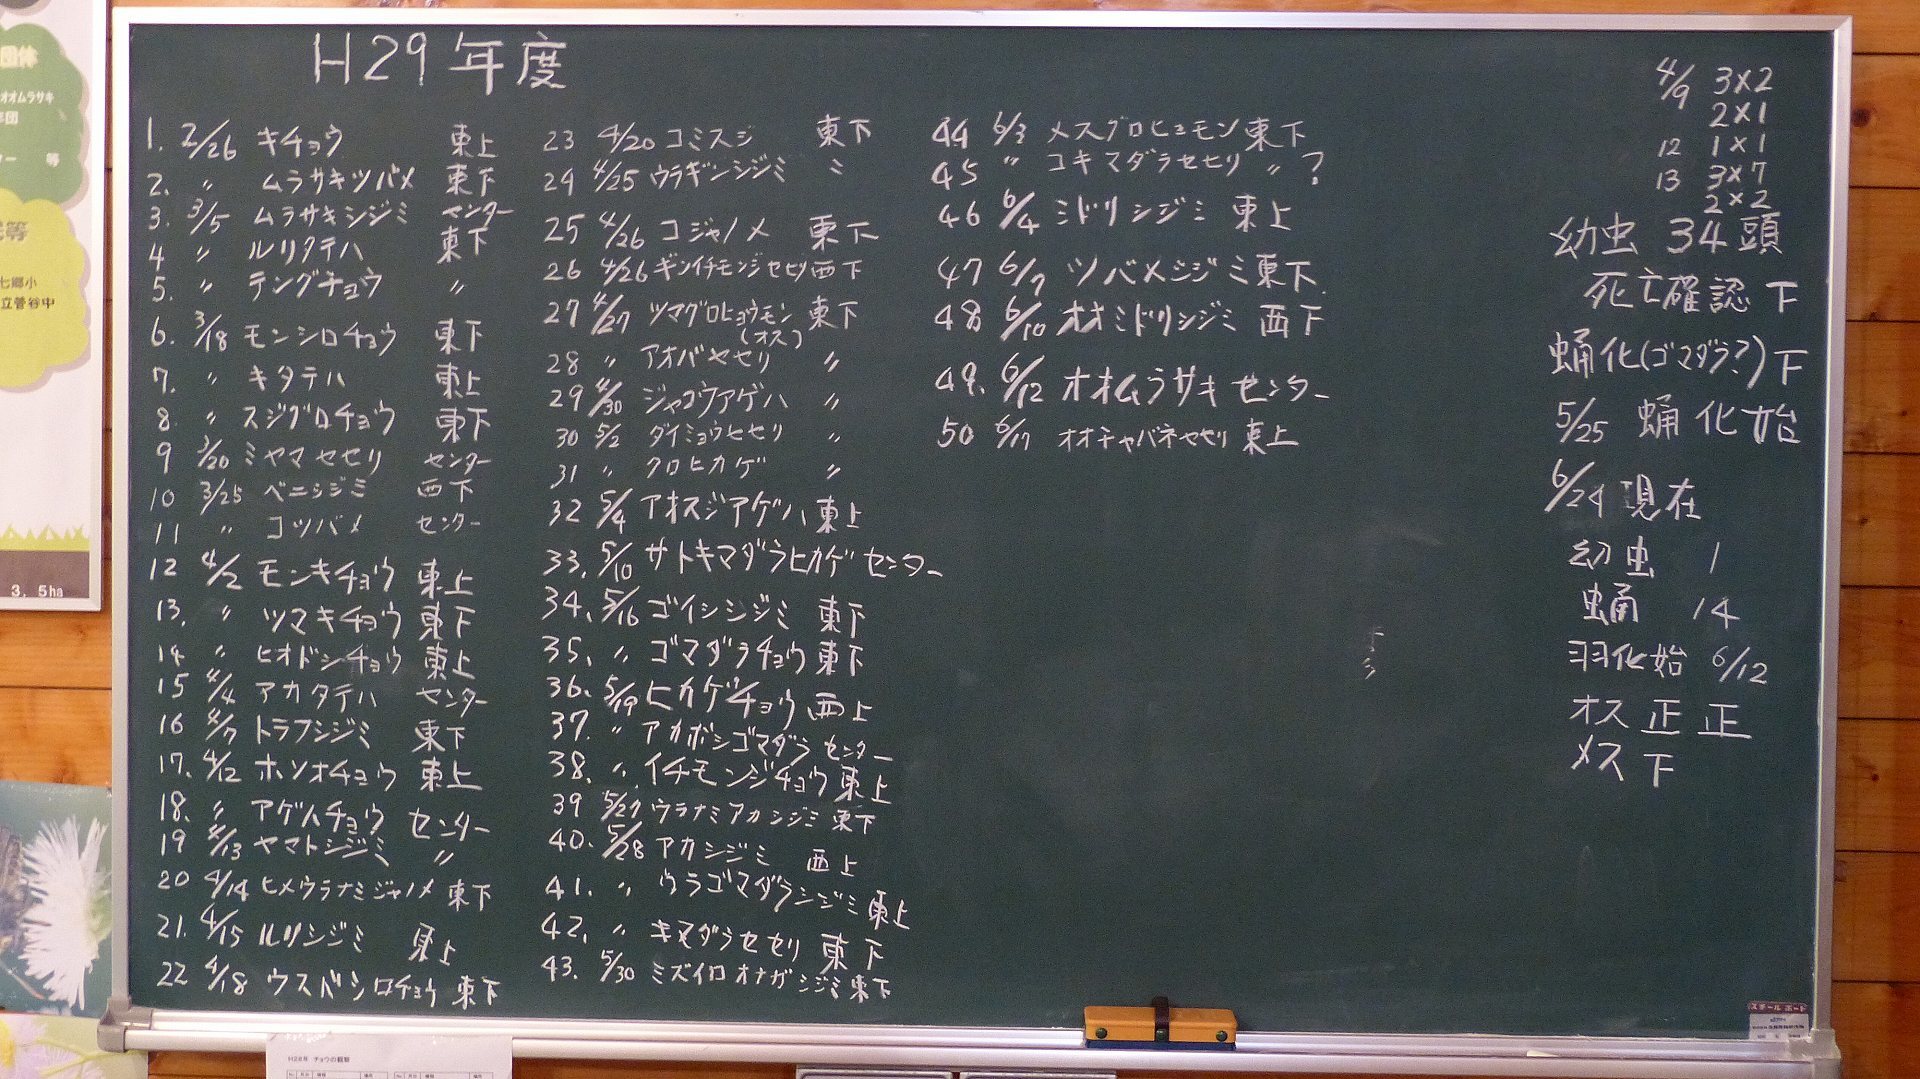 H29年度
1. 2/26 キチョウ 東上
2. 〃 ムラサキツバメ 東下
3. 3/5 ムラサキシジミ センター
4 〃 ルリタテハ 東下
5. 〃 テングチョウ 〃
6. 3/18 モンシロチョウ 東下
7. 〃 キタテハ 東上
8. 〃 スジグロチョウ 東下
9 3/20 ミヤマセセリ センター
10 3/25 ベニシジミ 西下
11 〃 コツバメ センター
12 4/2 モンキチョウ 東上
13. 〃 ツマキチョウ 東下
14 〃 ヒオドシチョウ 東上
15 4/4 アカタテハ センター
16 4/7 トラフシジミ 東下
17. 4/12 ホソオチョウ 東上
18. 〃 アゲハチョウ センター
19 4/13 ヤマトシジミ 〃
20 4/14 ヒメウラナミジャノメ 東下
21. 4/15 ルリシジミ 東上
22 4/18 ウスバシロチョウ 東下
23 4/20 コミスジ 東下
24 4/25 ウラギンシジミ 〃
25 4/26 コジャノメ 東下
26 4/26 ギンイチモンジセセリ 西下
27 4/27 ツマグロヒョウモン 東下
(オス)
28 〃 アオバセセリ 〃
29 4/30 ジャコウアゲハ 〃
30 5/2 ダイミョウセセリ 〃
31 〃 クロヒカゲ 〃
32 5/4 アオスジアゲハ 東上
33. 5/10 サトキマダラヒカゲ センター
34. 5/16 ゴイシシジミ 東下
35. 〃 ゴマダラチョウ 東下
36. 5/19 ヒカゲチョウ 西上
37. 〃 アカボシゴマダラ センター
38. 〃 イチモンジチョウ 東上
39 5/27 ウラナミアカシジミ 東下
40. 5/28 アカシジミ 西上
41. 〃 ウラゴマダラシジミ 東上
42. 〃 キマダラセセリ 東下
43. 5/30 ミズイロオナガシジミ 東下
44 6/3 メスグロヒョウモン 東下
45 〃 コキマダラセセリ 〃 ?
46 6/4 ミドリシジミ 東上
47 6/7 ツバメシジミ 東下
48 6/10 オオミドリシジミ 西下
49. 6/12 オオムラサキ センター
50 6/17 オオチャバネセセリ 東上
4/9 3×2
2×1
12 1×1
13 3×7
2×2
幼虫 34頭
死亡確認 下
蛹化(ゴマダラ?) 下
5/25 蛹化始
6/24 現在
幼虫 1
蛹 14
羽化始 6/12
オス 正正
メス 下
団体
オオムラサキ
等
七郷小
立菅谷中
3.5ha
スチールボード
H28年 チョウの観察